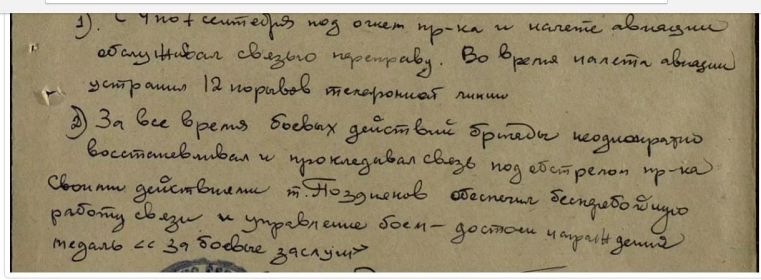 1). С 4 по 7 сентября под огнем пр-ка и налете авиации
обслуживал связью переправу. Во время налета авиации
устранил 12 порывов телефонной линии
2) За все время боевых действий бригады неоднократно
восстанавливал и прокладывал связь под обстрелом пр-ка
Своими действиями т. Поздненов обеспечил бесперебойную
работу связи и управление боем – достоин награждения
медаль << За боевые заслуги>>